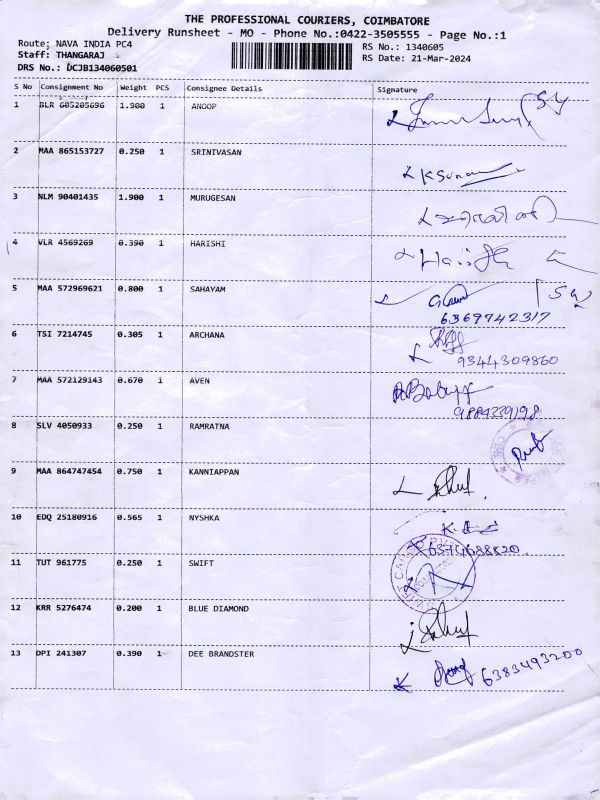 THE PROFESSIONAL COURIERS, COIMBATORE
Delivery Runsheet - MO - Phone No.:0422-3505555 - Page No.:1
Route; NAVA INDIA PC4
RS No.: 1340605
Staff: THANGARAJ
RS Date: 21-Mar-2024
DRS No.: DCJB134060501
S No Consignment No Weight PCS Consignee Details Signature
1 BLR 605205696 1.900 1 ANOOP
2 MAA 865153727 0.250 1 SRINIVASAN
3 NLM 90401435 1.900 1 MURUGESAN
4 VLR 4569269 0.390 1 HARISHI
5 MAA 572969621 0.800 1 SAHAYAM
6369742317
6 TSI 7214745 0.305 1 ARCHANA
9344309860
7 MAA 572129143 0.670 1 AVEN
9884239198
8 SLV 4050933 0.250 1 RAMRATNA
9 MAA 864747454 0.750 1 KANNIAPPAN
10 EDQ 25180916 0.565 1 NYSHKA
6374688820
11 TUT 961775 0.250 1 SWIFT
12 KRR 5276474 0.200 1 BLUE DIAMOND
13 DPI 241307 0.390 1 DEE BRANDSTER
6383493200